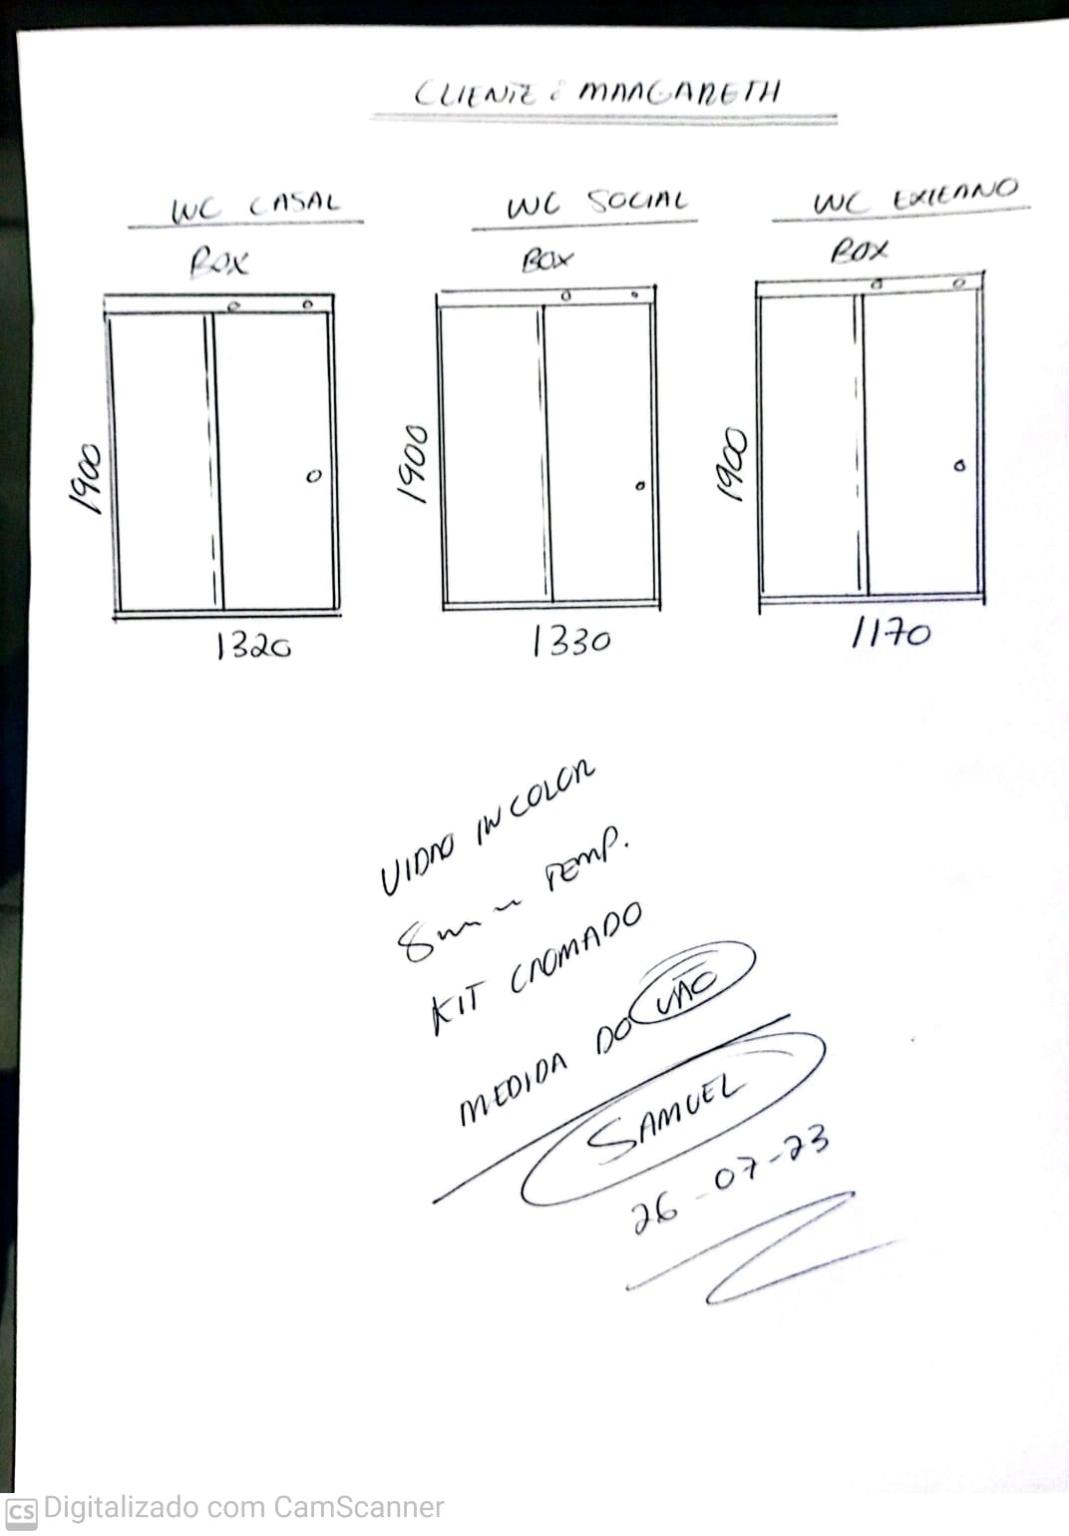 CLIENTE: MARGARETH
WC CASAL
WC SOCIAL
WC EXTERNO
BOX
BOX
BOX
1900
1900
1900
1320
1330
1170
VIDRO INCOLOR
8mm TEMP.
KIT CROMADO
MEDIDA DO VÃO
SAMUEL
26-07-23
CS Digitalizado com CamScanner